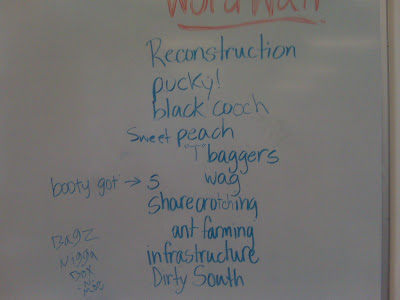 Word Wall
Reconstruction
pucky!
black cooch
Sweet peach
"T" baggers
booty got → s wag
Sharecrotching
ant farming
infrastructure
Dirty South
Bagz
Nigga
Dox